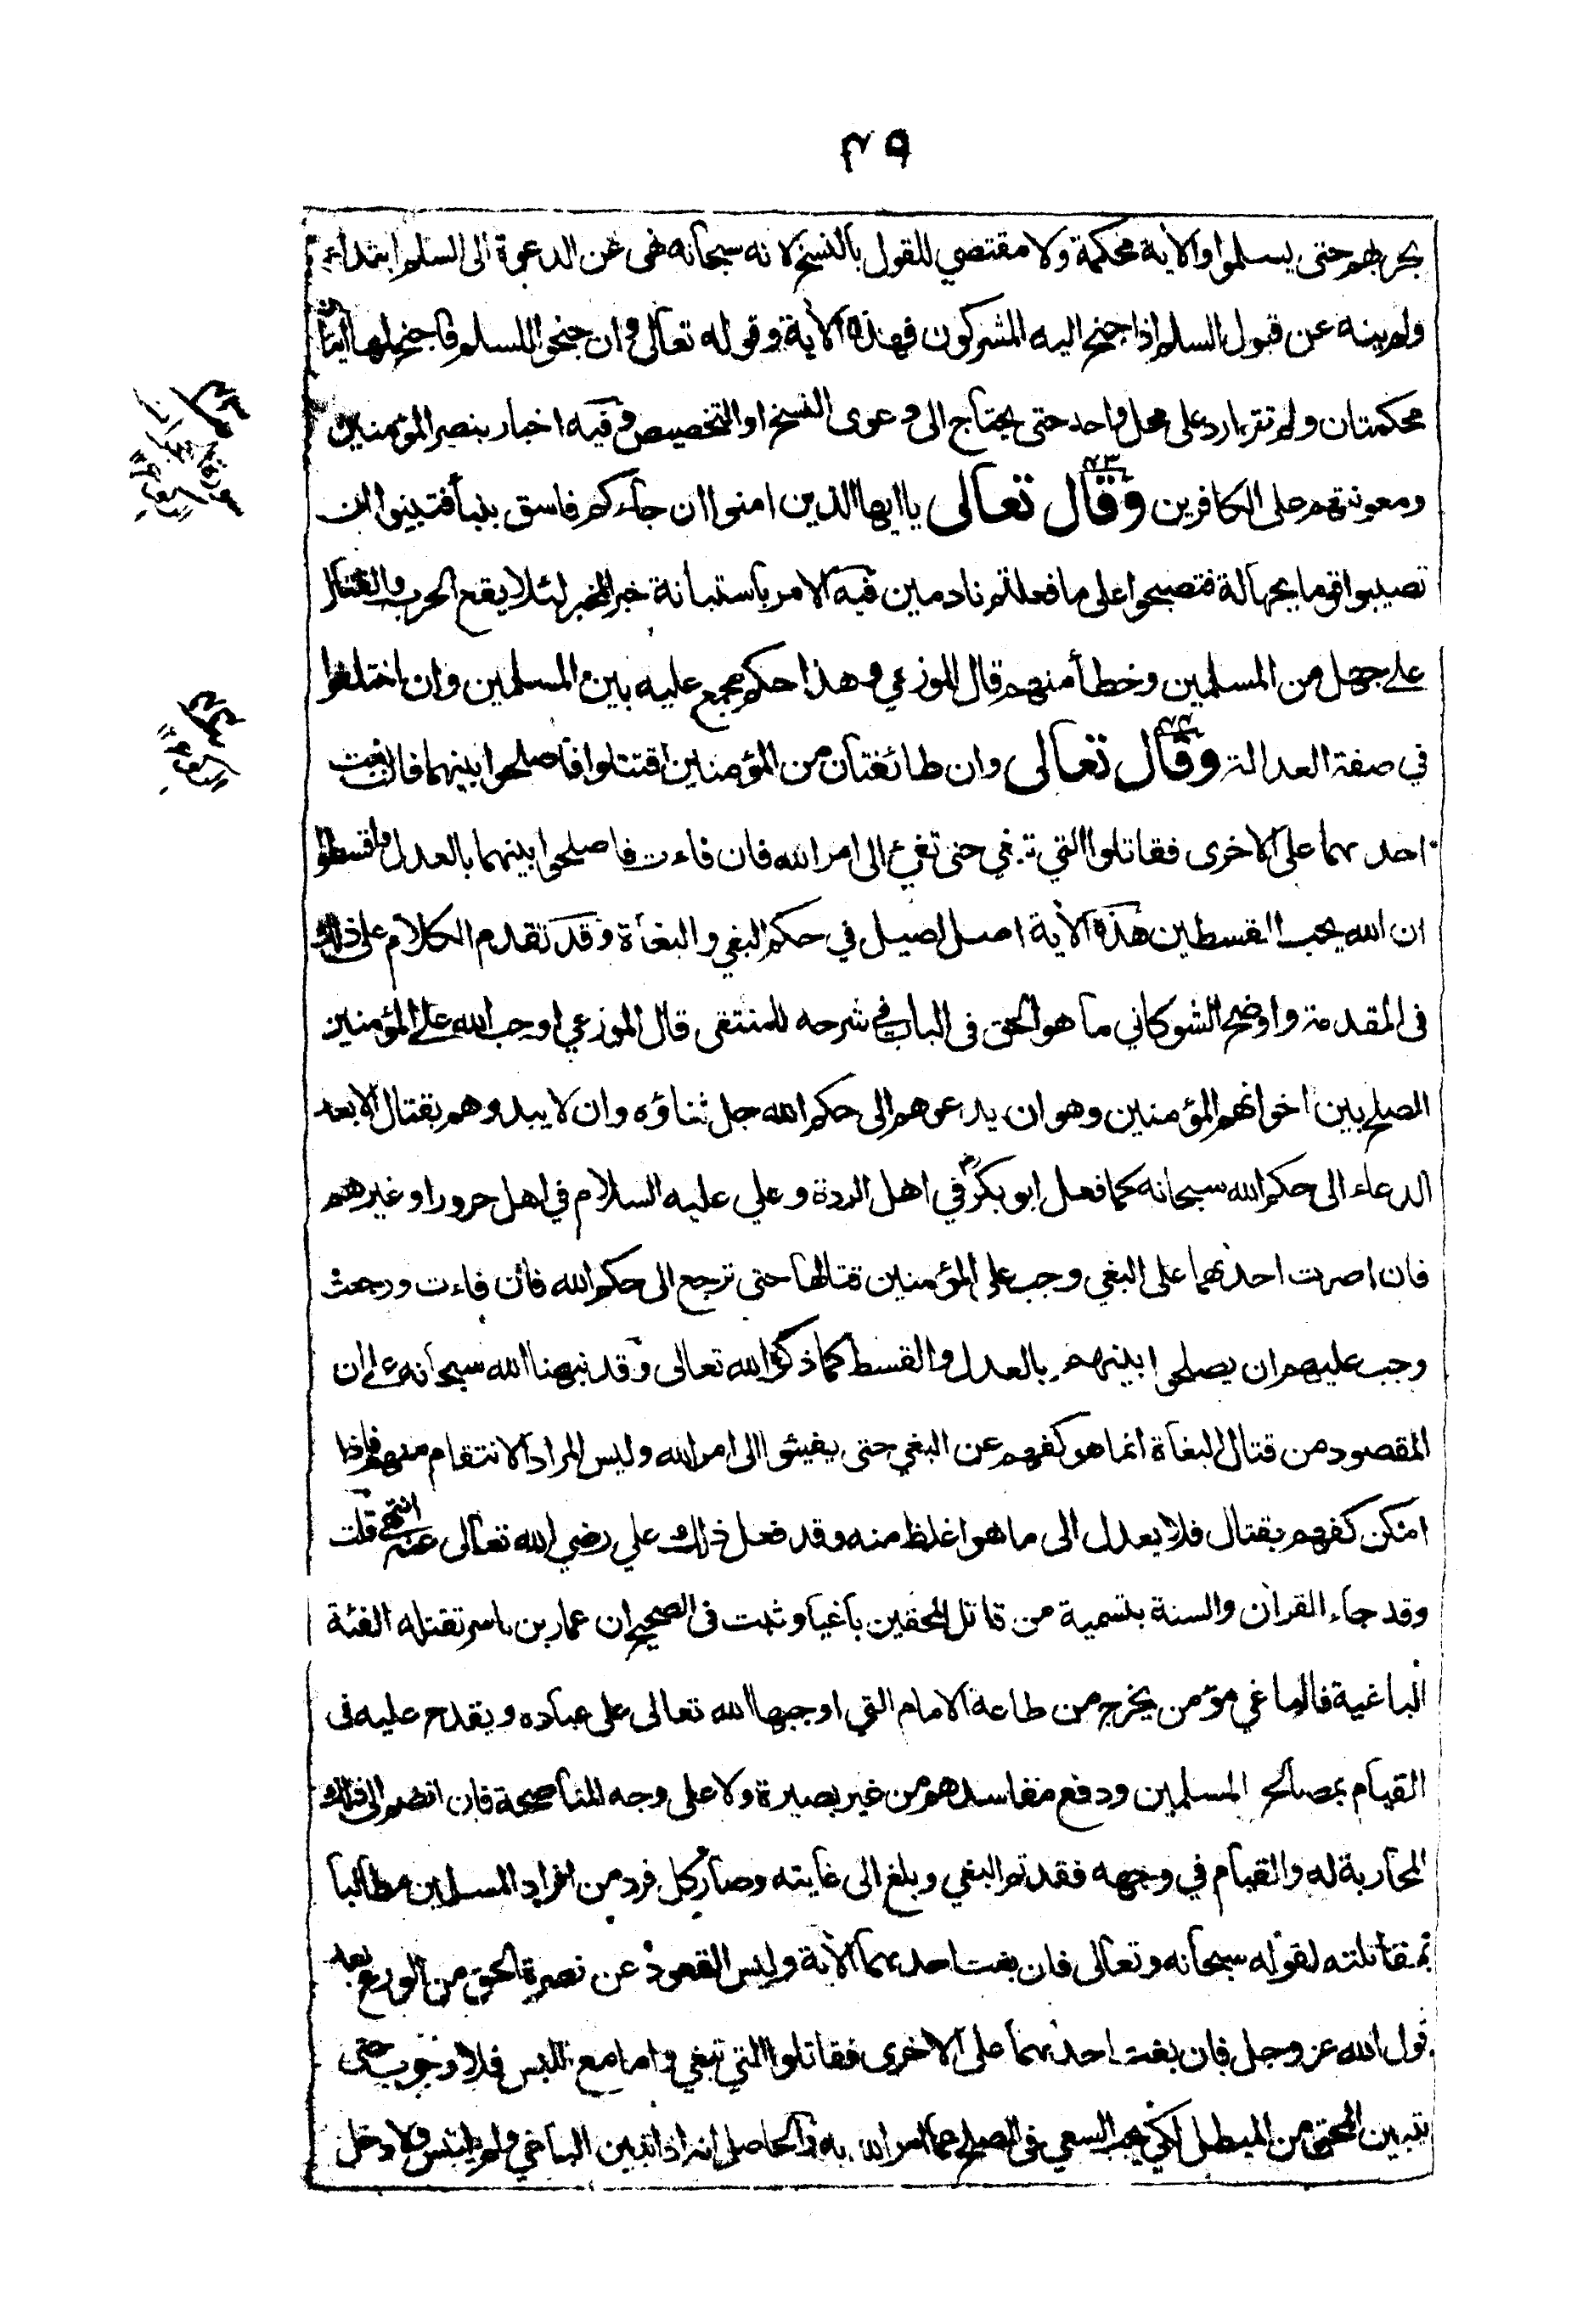 ٤٩
بحربهم حتى يسلموا والآية محكمة ولا مقتضي للقول بالنسخ لانه سبحانه نهى عن الدعوة الى السلم ابتداء
ولم ينه عن قبول السلم اذا جنح اليه المشركون فهذه الآية وقوله تعالى وان جنحوا للسلم فاجنح لها آيتان
محكمتان ولم تتواردا على محل واحد حتى يحتاج الى دعوى النسخ او التخصيص وفيه اخبار بنصر المؤمنين
ومعونتهم على الكافرين وقال تعالى ياايها الذين امنوا ان جاءكم فاسق بنبأ فتبينوا ان
تصيبوا قوما بجهالة فتصبحوا على ما فعلتم نادمين فيه الامر باستبانة خبر المخبر لئلا يقع الحرب والقتال
على جهل من المسلمين وخطأ منهم قال الموزعي وهذا حكم مجمع عليه بين المسلمين وان اختلفوا
في صفة العدالة وقال تعالى وان طائفتان من المؤمنين اقتتلوا فاصلحوا بينهما فان بغت
احدىهما على الاخرى فقاتلوا التي تبغي حتى تفيء الى امر الله فان فاءت فاصلحوا بينهما بالعدل واقسطوا
ان الله يحب المقسطين هذه الآية اصل اصيل في حكم البغي والبغاة وقد تقدم الكلام على ذلك
فى المقدمة واوضح الشوكاني ما هو الحق فى الباب في شرحه للمنتقى قال الموزعي اوجب الله على المؤمنين
الصلح بين اخوانهم المؤمنين وهو ان يدعوهم الى حكم الله جل ثناؤه وان لا يبدوهم بقتال الا بعد
الدعاء الى حكم الله سبحانه كما فعل ابو بكر في اهل الردة وعلي عليه السلام في اهل حرورا وغيرهم
فان اصرت احدىهما على البغي وجب على المؤمنين قتالها حتى ترجع الى حكم الله فان فاءت ورجعت
وجب عليهم ان يصلحوا بينهم بالعدل والقسط كما ذكره الله تعالى وقد نبهنا الله سبحانه على ان
المقصود من قتال البغاة انما هو كفهم عن البغي حتى يفيئوا الى امر الله وليس المراد الانتقام منهم فاذا
امكن كفهم بقتال فلا يعدل الى ما هو اغلظ منه وقد فعل ذلك علي رضي الله تعالى عنه انتهى قلت
وقد جاء القران والسنة بتسمية من قاتل المحقين باغيا وثبت فى الصحيح ان عمار بن ياسر تقتله الفئة
الباغية فالباغي مؤمن يخرج من طاعة الامام التي اوجبها الله تعالى على عباده ويقدح عليه فى
القيام بمصالح المسلمين ودفع مفاسدهم من غير بصيرة ولا على وجه المناصحة فان انضم الى ذلك
المحاربة له والقيام في وجهه فقد تم البغي وبلغ الى غايته وصار كل فرد من افراد المسلمين مطالبا
بمقاتلته لقوله سبحانه وتعالى فان بغت احدىهما الآية وليس القعود عن نصرة الحق من الورع بعد
قول الله عز وجل فان بغت احدىهما على الاخرى فقاتلوا التي تبغي واما مع اللبس فلا وجوب حتى
يتبين المحق من المبطل لكي يجب السعي فى الصلح كما امر الله به والحاصل انه اذا تبين الباغي ولم يلتبس ولا دخل